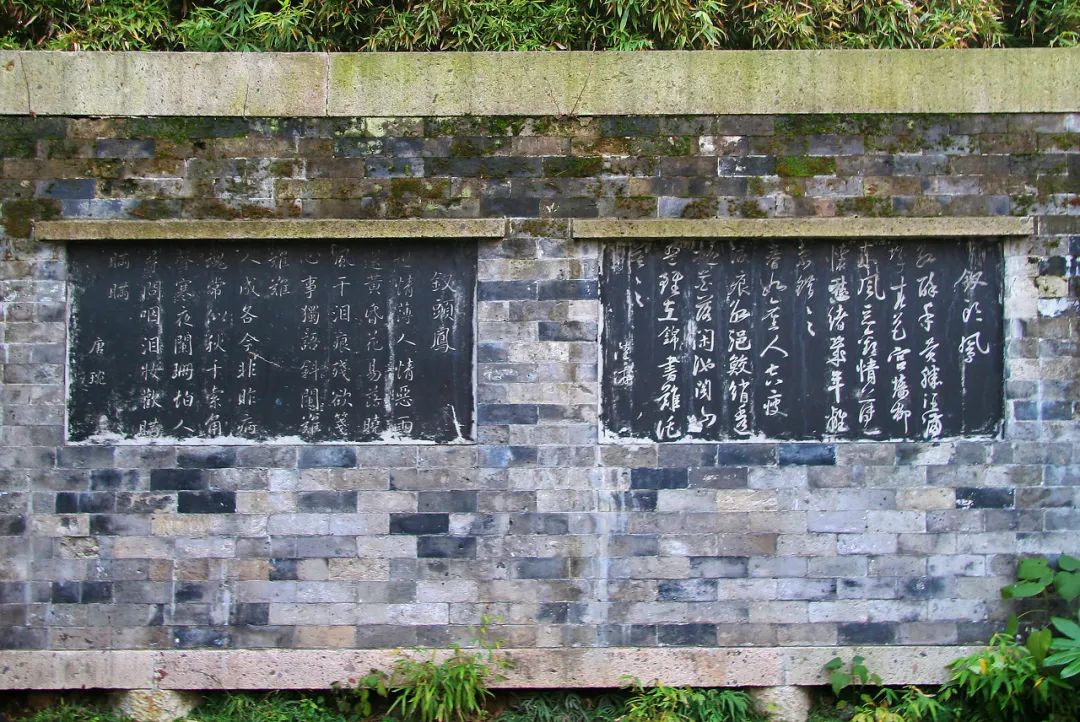 釵頭鳳
紅酥手黄縢酒滿
城春色宮牆柳
東風惡歡情薄一
懷愁緒幾年離
索錯々
春如舊人空瘦
淚痕紅浥鮫綃透
桃花落閒池閣山
盟雖在錦書難託
莫々
陸游
釵頭鳳
世情薄人情惡雨
送黄昏花易落曉
風干泪痕殘欲箋
心事獨語斜闌難
難難
人成各今非昨病
魂常似秋千索角
聲寒夜闌珊怕人
尋問咽泪妝歡瞞
瞞瞞
唐琬